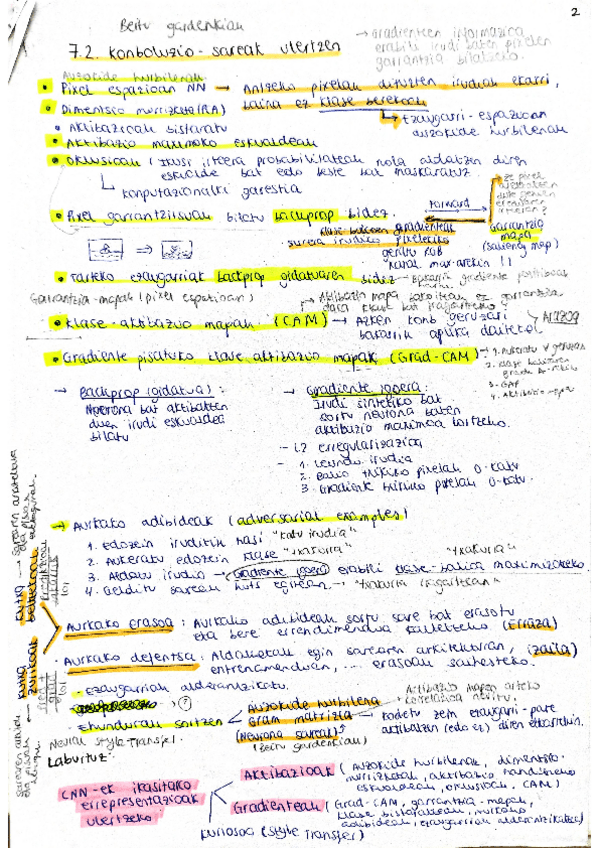 2
Beitu gardenkiak
7.2. Konboluzio-sareak ulertzen
→ Gradienteen informazioa erabili irudi baten pixelen garrantzia bilatzeko.
Auzokide hurbilenak
• Pixel espazioan NN → Antzeko pixelak dituzten irudiak ekarri,
baina ez klase berekoak
• Dimentsio murrizketa (PCA)
↳ Ezaugarri-espazioan
auzokide hurbilenak
• Aktibazioak bistaratu
• Aktibazio maximoko eskualdeak
• Oklusioak (Ikusi irteera probabilitateak nola aldatzen diren
eskualde bat edo beste bat maskaratuz
↳ konputazionalki garestia
• Pixel garrantzitsuak bilatu backprop bidez.
forward
klase bakoitzeko gradienteak
sarrera irudiko pixelekiko
gehitu RGB
kanal max-arekin !!
Garrantzia
mapa
(saliency map)
• Tarteko ezaugarriak backprop gidatuaren bidez
Garrantzia-mapak (pixel espazioan)
• Klase-aktibazio mapak (CAM) → Azken konb geruzari
bakarrik aplika daiteke!
• Gradiente pisatuko klase aktibazio mapak (Grad-CAM)
3. GAP
→ Backprop gidatua:
Neurona bat aktibatzen
duen irudi eskualdea
bilatu
→ Gradiente igoera:
Irudi sintetiko bat
sortu neurona baten
aktibazio maximoa lortzeko.
- L2 erregularizazioa
- 1. Leundu irudia
2. Balio txikiko pixelak 0-ratu
3. Gradiente txikiko pixelak 0-ratu.
→ Aurkako adibideak (adversarial examples)
1. Edozein irudirekin hasi "katu irudia"
2. Aukeratu edozein klase "txakurra"
3. Aldatu irudia → Gradiente igoera erabili klase-balioa maximizatzeko.
"txakurra"
4. Gelditu sareak huts egitean → "txakurra iragartzean"
Aurkako erasoa: Aurkako adibideak sortu sare bat erasotu
eta bere errendimendua kaltetzeko (Erraza)
Aurkako defentsa: Aldaketak egin sarearen arkitekturan, (zaila)
entrenamenduan, ... erasoak saihesteko.
kutxa zuriak
kutxa beltzekoak
- Ezaugarriak alderantzikatu.
- Ehundurak sortzen
Auzokide hurbilena
Gram matrizea
(Neurona sareak)
(Beitu gardenkiak)
Aktibazio mapen arteko
korrelazioa neurtu.
→ Kodetu zein ezaugarri-pare
aktibatzen (edo ez) diren elkarrekin.
Neural Style-Transfer.
Laburtuz:
CNN-ek ikasitako
errepresentazioak
ulertzeko
Aktibazioak (auzokide hurbilenak, dimentsio-
murrizketak, aktibazio handieneko
eskualdeak, oklusioak, CAM)
Gradienteak (Grad-CAM, garrantzia-mapak,
klase bistaratzeak, aurkako
adibideak, ezaugarriak alderantzikatzea)
Kuriosoa (style transfer)